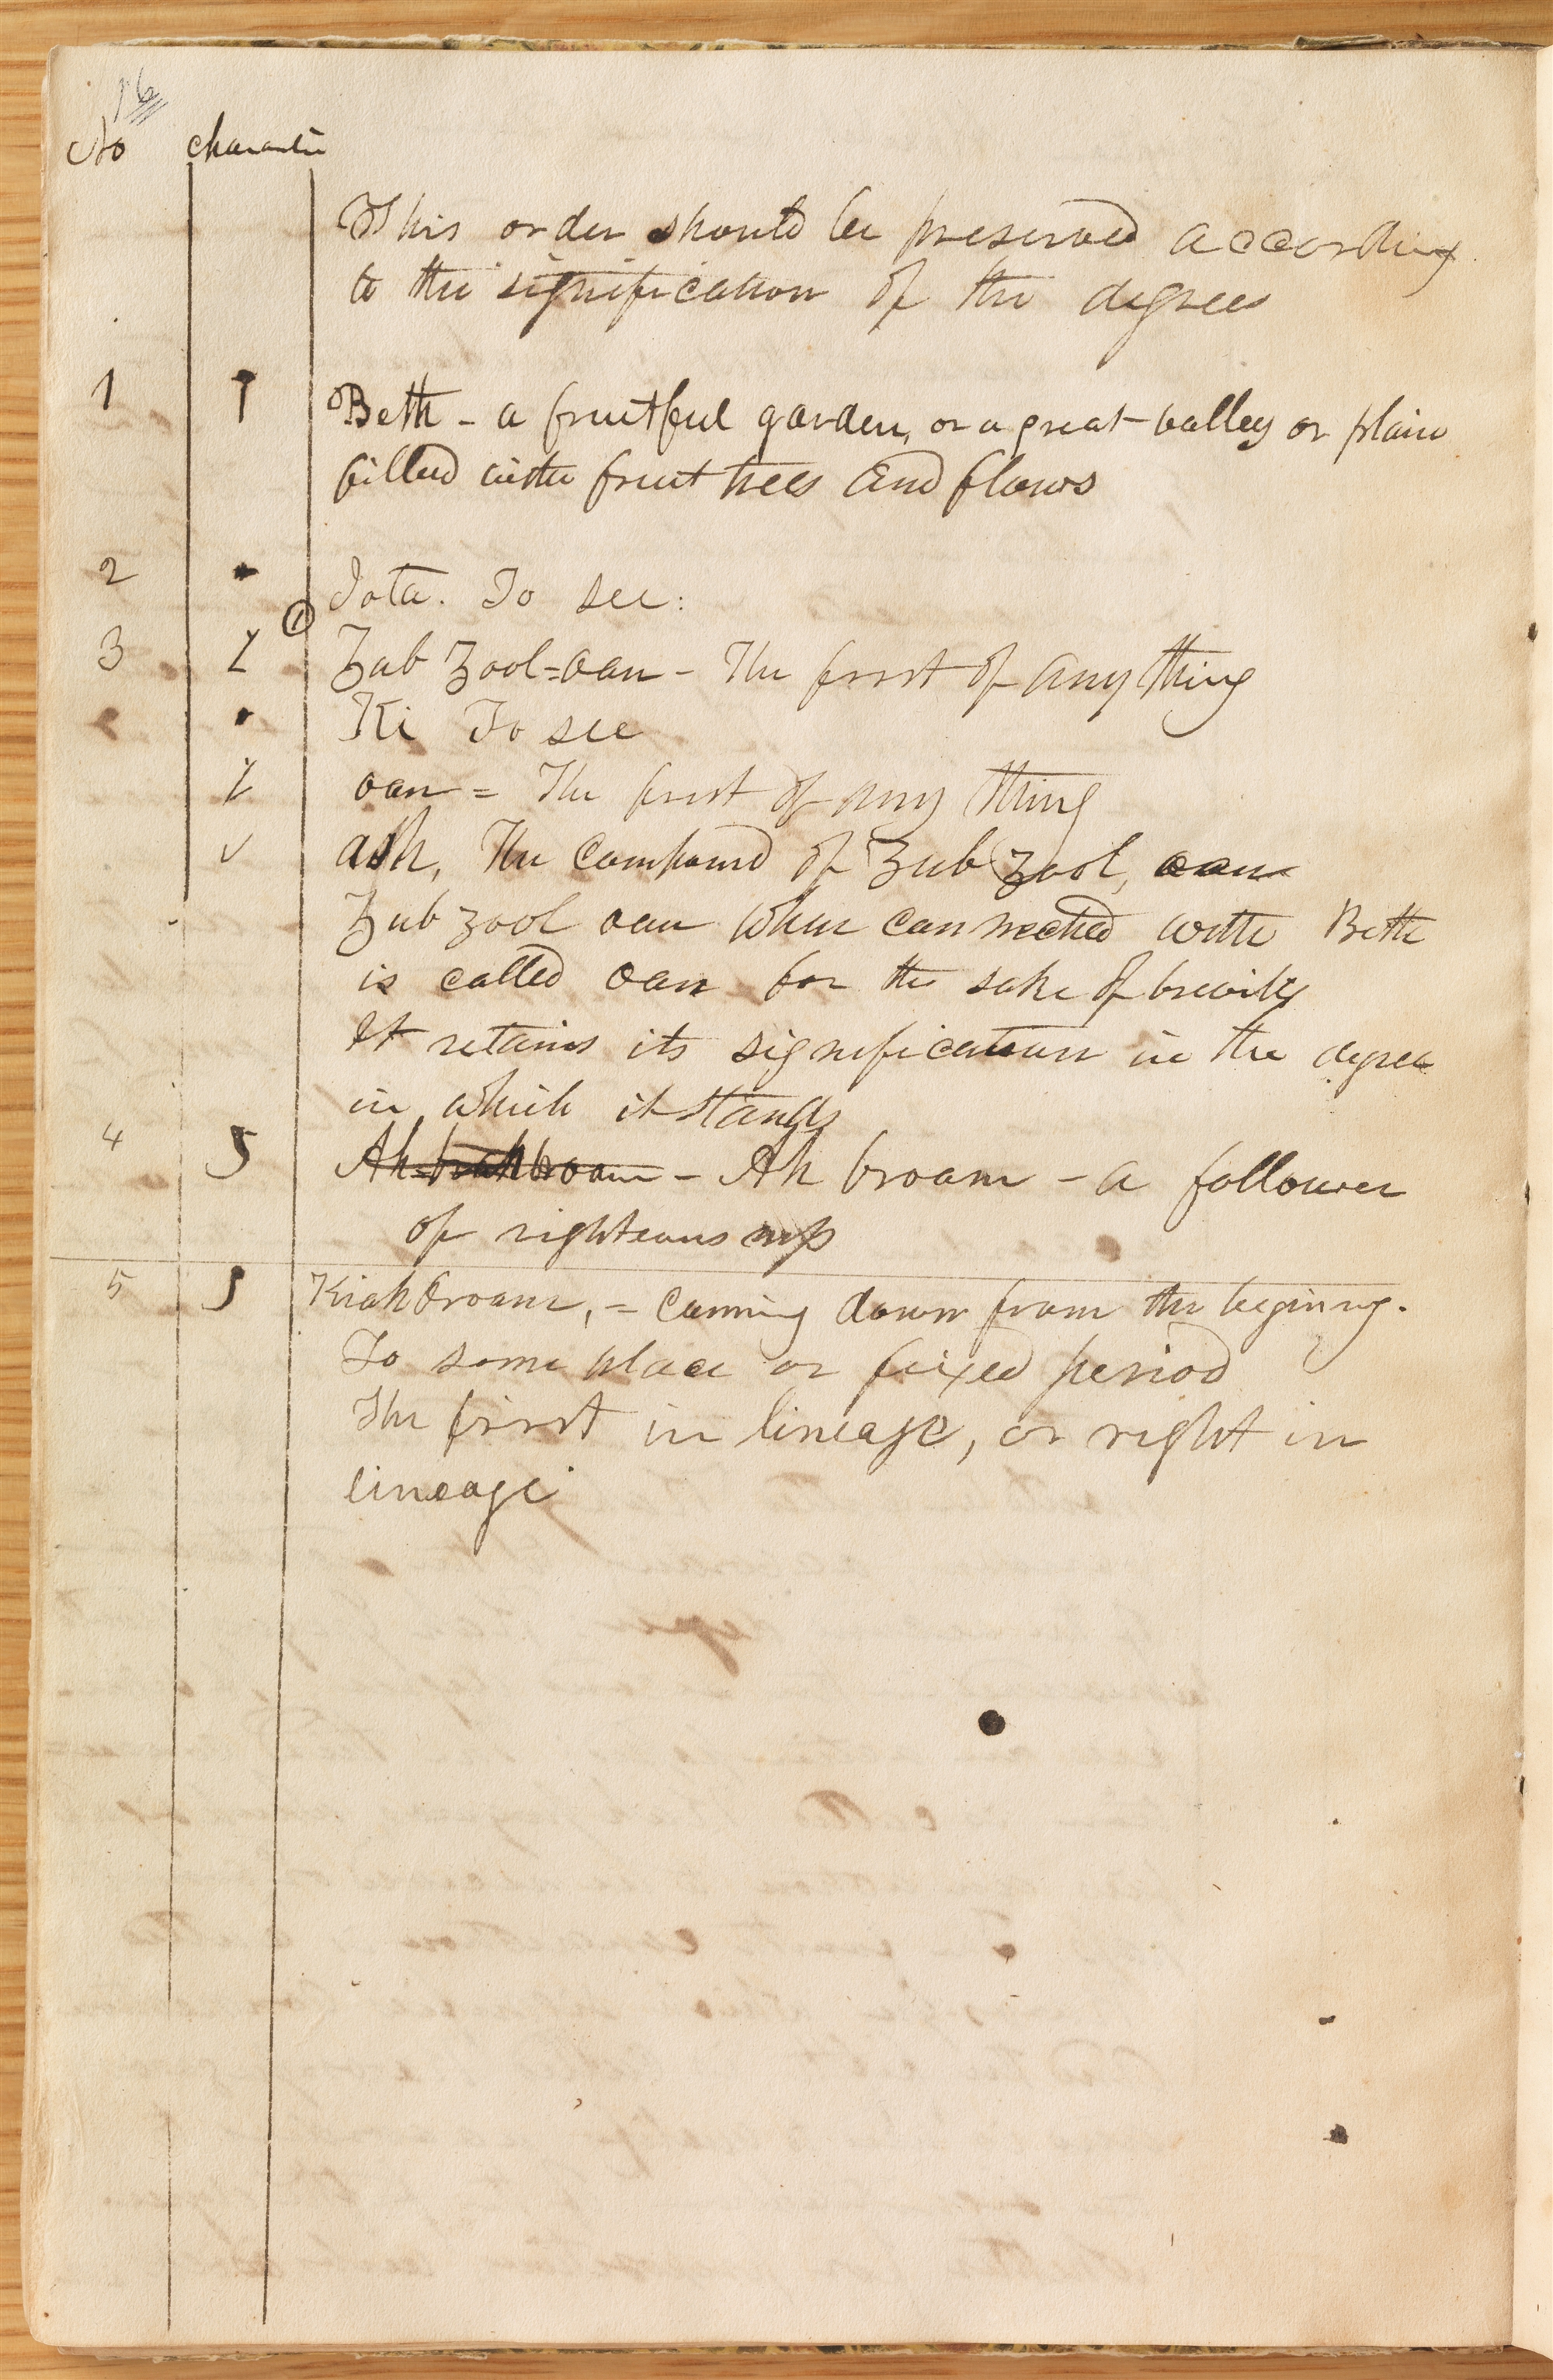 16
No character
This order should be preserved according
to the signification of the degrees
1 Beth - a fruitful garden, or a great valley or plain
filled with fruit trees and flowers
2 Iota. To see:
3 Zub Zool=oan - The first of any thing
Ki To see
oan = The first of any thing
ash, The compound of Zub Zool, oan
Zub zool oan when connected with Beth
is called oan for the sake of brevity
It retains its signification in the degree
in which it stands
4 Ah=brah broam - Ah broam - a follower
of righteousness
5 Kiahbroam, = Coming down from the begining.
To some place or fixed period
The first in lineage, or right in
lineage